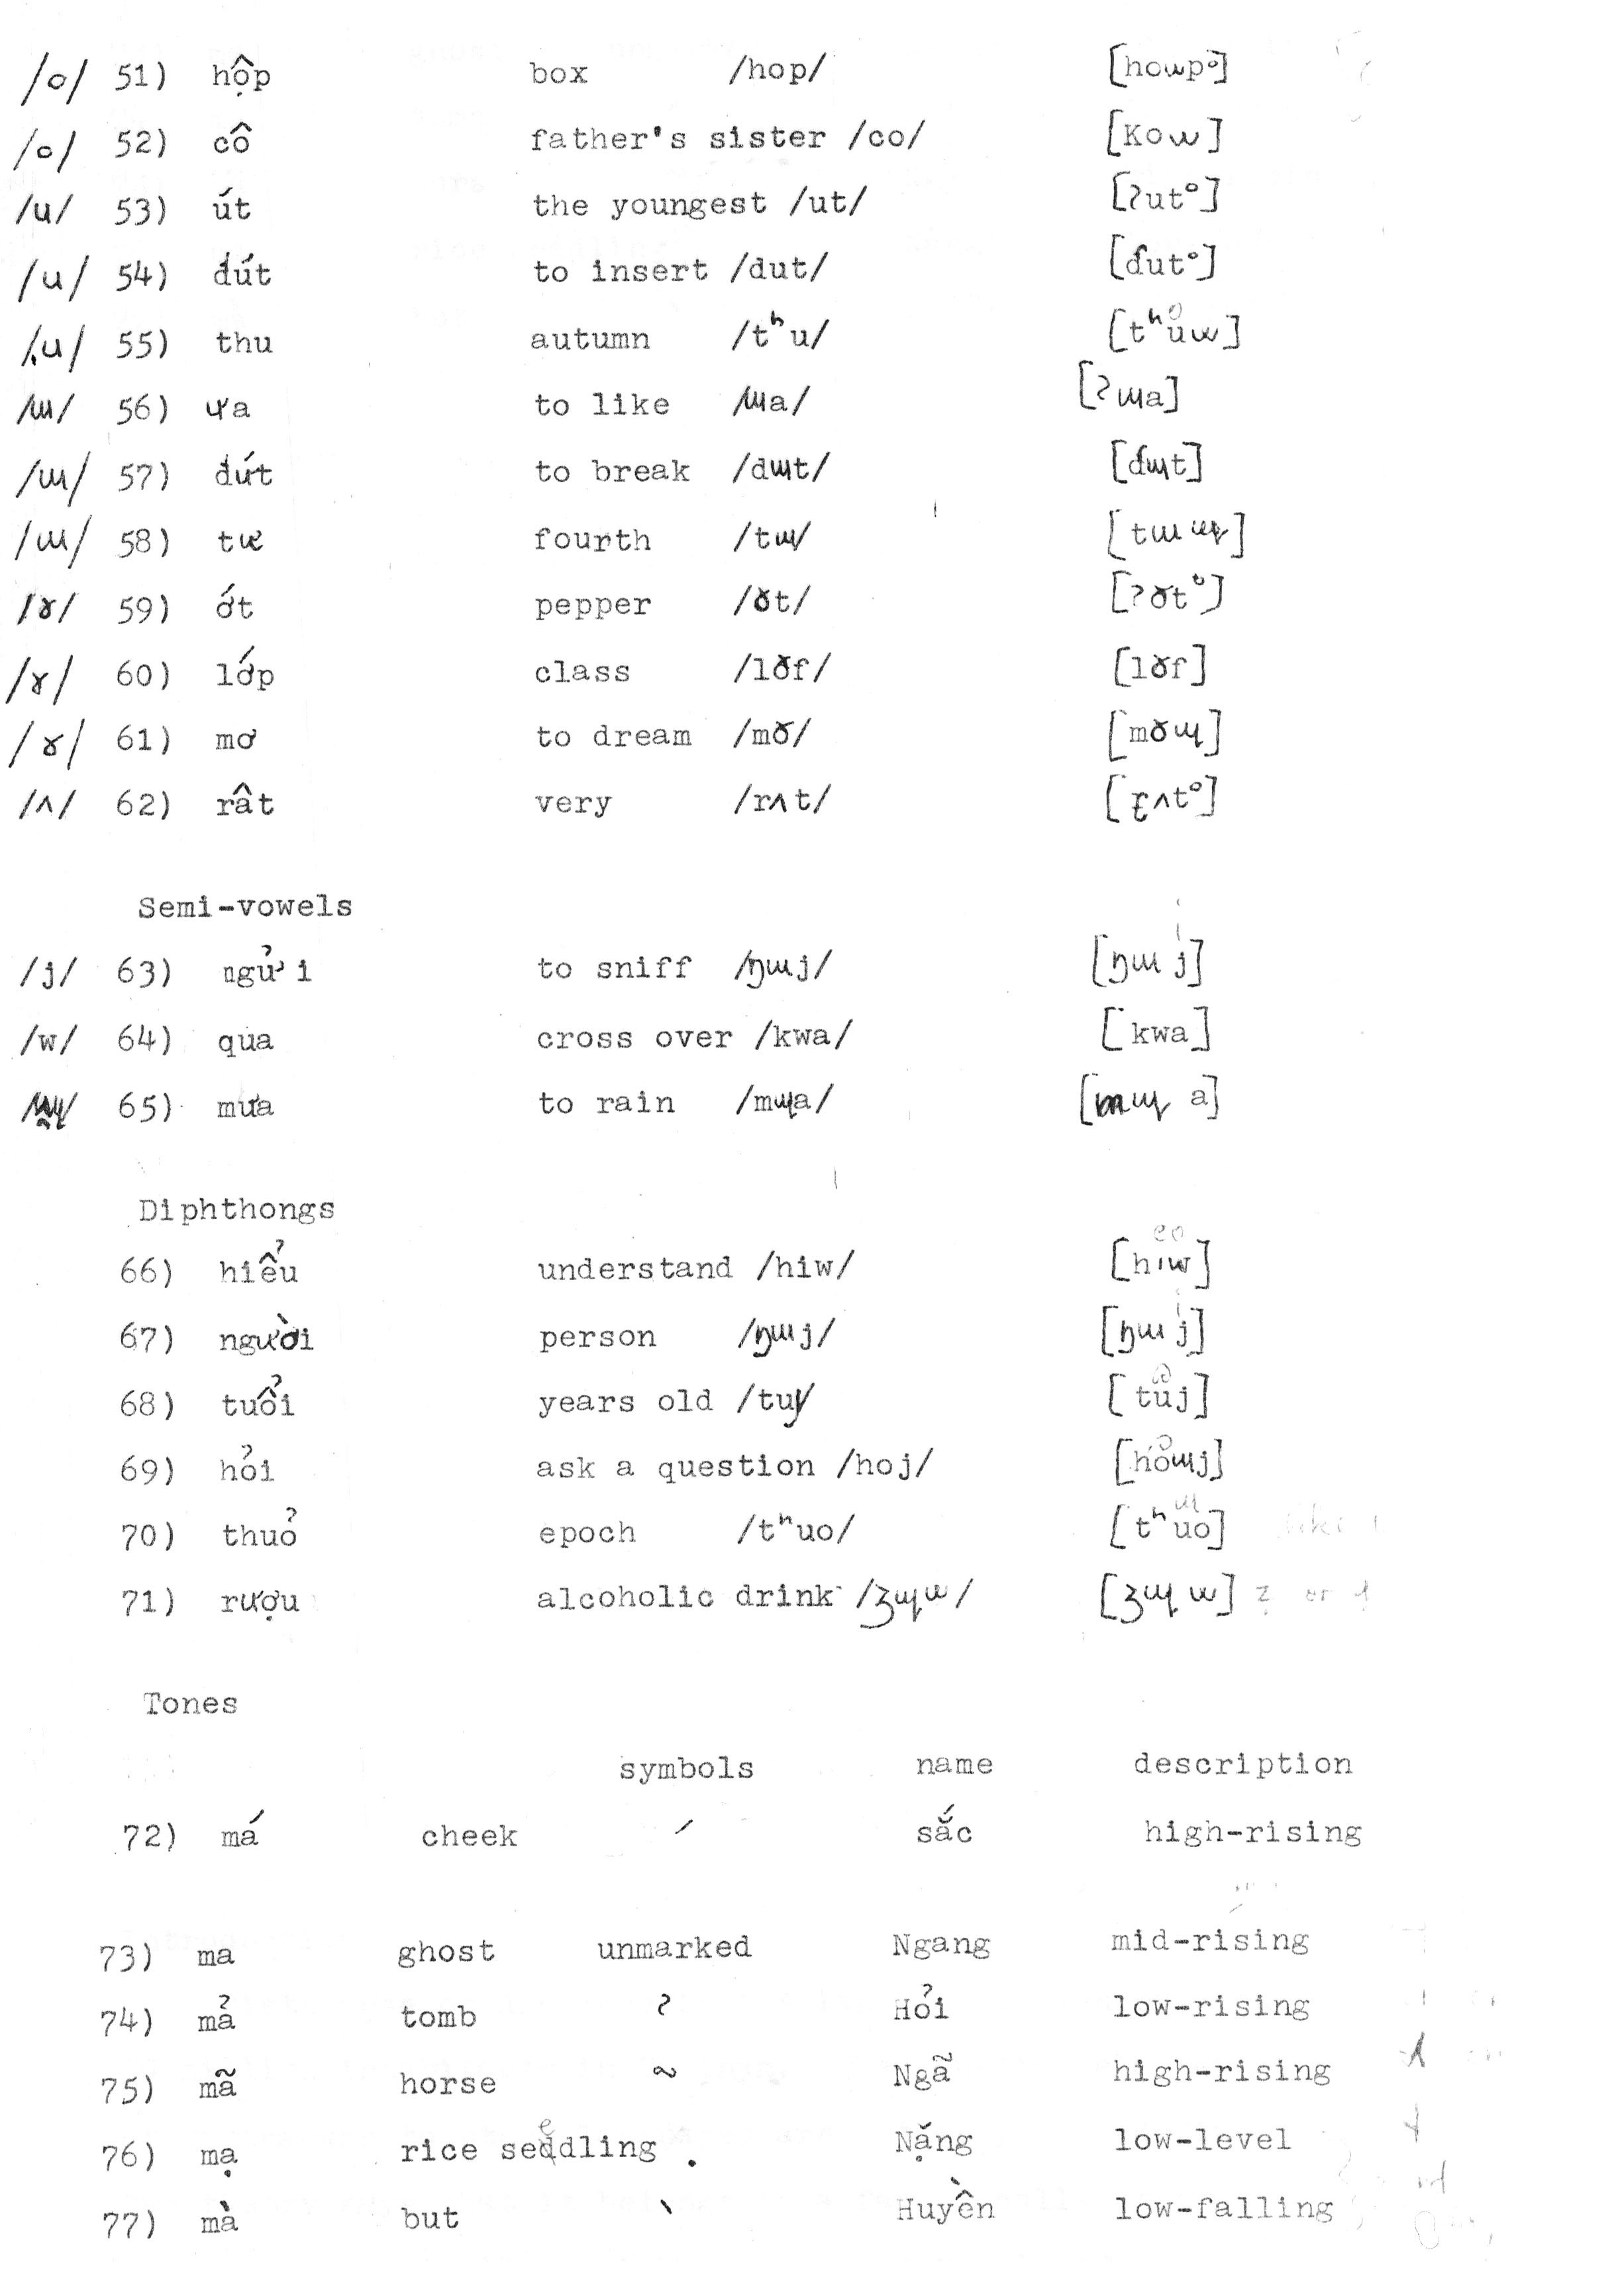 /o/ 51) hộp box /hop/ [howpº]
/o/ 52) cô father's sister /co/ [Kow]
/u/ 53) út the youngest /ut/ [ʔutº]
/u/ 54) đút to insert /dut/ [ɗutº]
/u/ 55) thu autumn /tʰu/ [tʰuw]
/ɯ/ 56) ưa to like /ɯa/ [ʔɯa]
/ɯ/ 57) đứt to break /dɯt/ [ɗɯt]
/ɯ/ 58) tư fourth /tɯ/ [tɯɰ]
/ɤ/ 59) ớt pepper /ɤt/ [ʔɤtº]
/ɤ/ 60) lớp class /lɤf/ [lɤf]
/ɤ/ 61) mơ to dream /mɤ/ [mɤɰ]
/ʌ/ 62) rât very /rʌt/
Semi-vowels
/j/ 63) ngửi to sniff /ŋɯj/ [ŋɯj]
/w/ 64) qua cross over /kwa/ [kwa]
65) mưa to rain /mɰa/ [mɰa]
Diphthongs
66) hiểu understand /hiw/ [hiw]
67) người person /ŋɯj/ [ŋɯj]
68) tuổi years old /tuj/ [tuj]
69) hỏi ask a question /hoj/ [hoɯj]
70) thuở epoch /tʰuo/ [tʰuo]
71) rượu alcoholic drink /ʒɰw/ [ʒɰw]
Tones
symbols name description
72) má cheek ´ sắc high-rising
73) ma ghost unmarked Ngang mid-rising
74) mả tomb ̉ Hỏi low-rising
75) mã horse ~ Ngã high-rising
76) mạ rice seedling . Nặng low-level
77) mà but ` Huyền low-falling